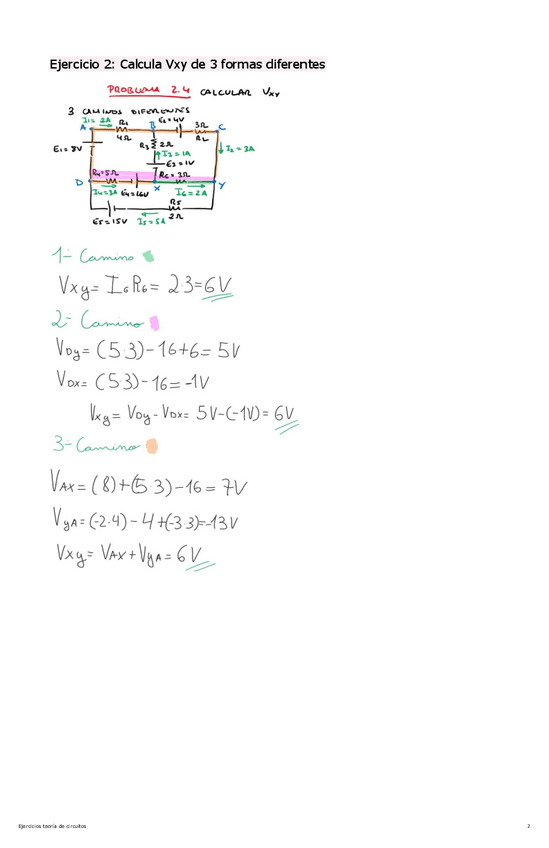 Ejercicio 2: Calcula Vxy de 3 formas diferentes
PROBLEMA 2.4 CALCULAR Vxy
3 CAMINOS DIFERENTES
I1= 2A R1 B E2=4V 3Ω
A 4Ω R2 C
E1=8V R3 2Ω I3=1A I2=3A
E3=1V
R4=5Ω R6=3Ω
D X Y
I4=3A E4=16V I6=2A
R5
E5=15V I5=5A 2Ω
1- Camino
Vxy= I6R6= 2·3=6V
2- Camino
VDy= (5·3)-16+6= 5V
VDx= (5·3)-16=-1V
Vxy= VDy-VDx= 5V-(-1V)= 6V
3- Camino
VAx= (8)+(5·3)-16= 7V
VyA=(-2·4)-4+(-3·3)=-13V
Vxy= VAx+VyA= 6V
Ejercicios teoría de circuitos 2